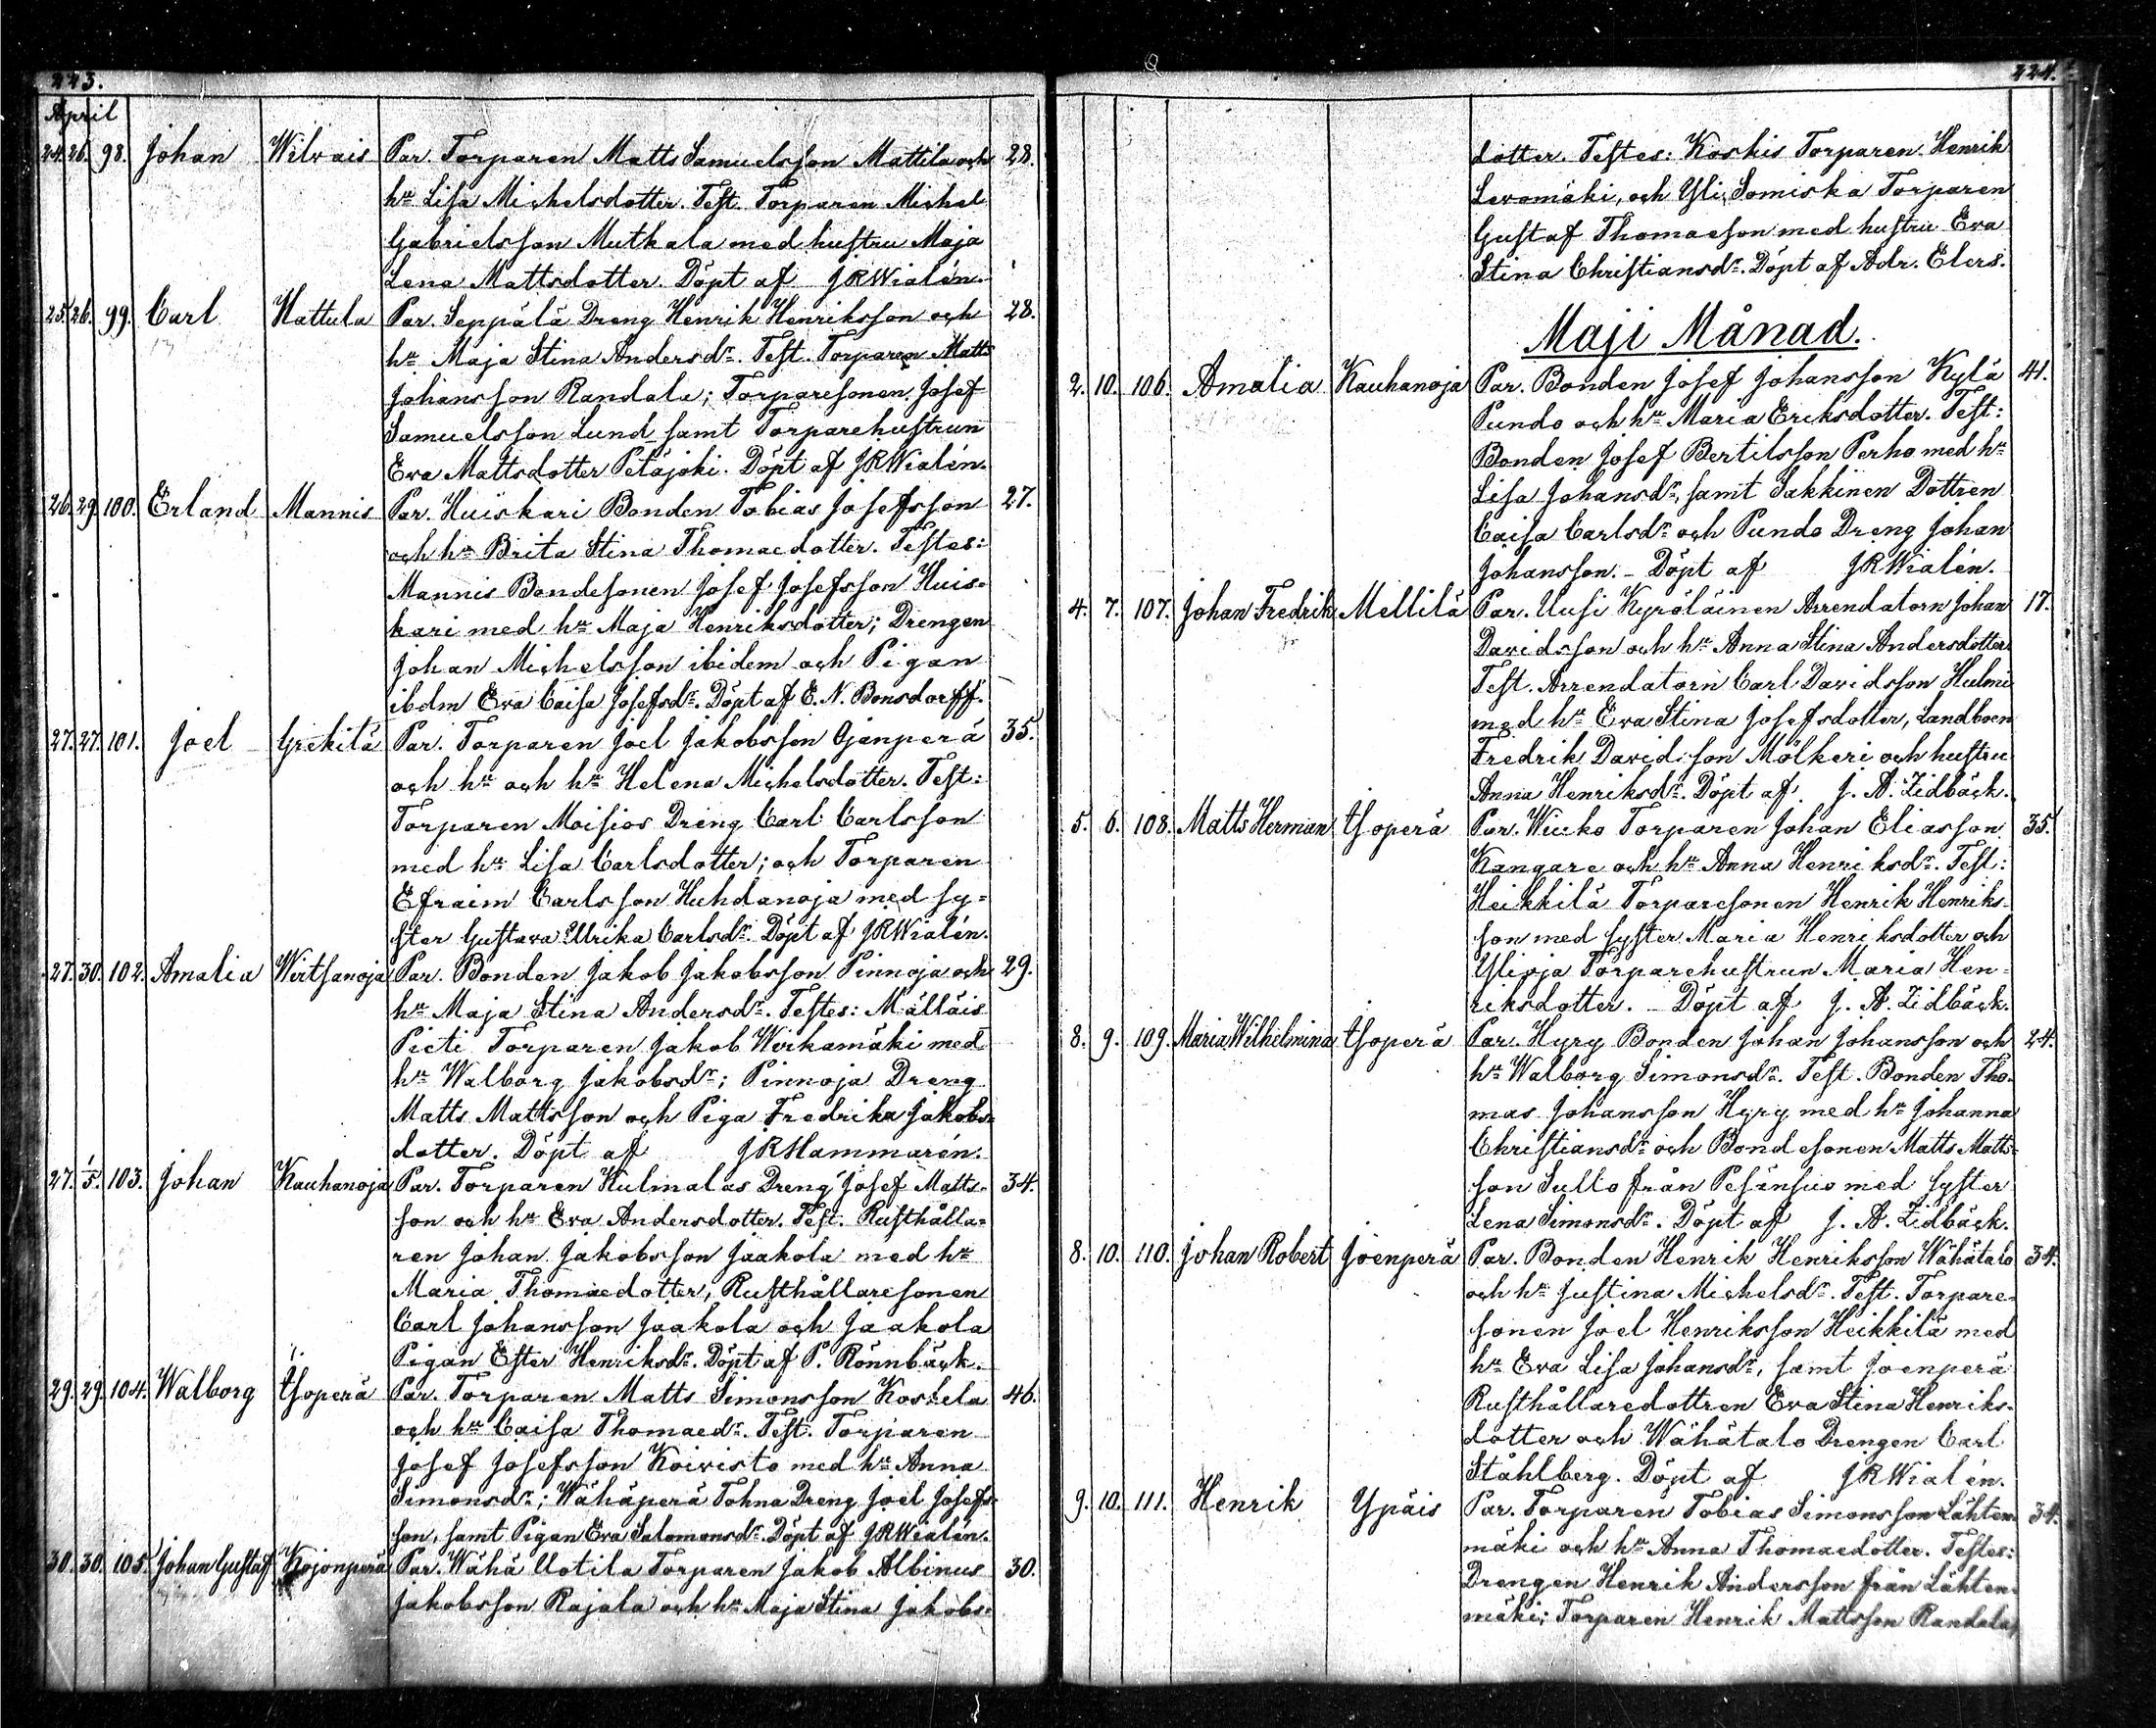 223.
April
24. 26. 98. Johan Wilvais Par. Torparen Matts Samuelsson Mattila och 28.
hu Lisa Michelsdotter. Test. Torparen Michel
Gabrielsson Mutkala med hustru Maja
Lena Mattsdotter. Döpt af JRWialén.
25. 26. 99. Carl Hattula Par. Seppälä Dreng Henrik Henriksson och 28.
hu Maja Stina Andersdr. Test. Torparen Matts
Johansson Randala; Torparesonen Josef
Samuelsson Lund samt Torparehustrun
Eva Mattsdotter Petäjoki. Döpt af JRWialén.
26. 29. 100. Erland Mannis Par. Huiskari Bonden Tobias Josefsson 27.
och hu Brita Stina Thomaedotter. Testes:
Mannis Bondesonen Josef Josefsson Huis-
kari med hu Maja Henriksdotter; Drengen
Johan Michelsson ibidem och Pigan
ibdm Eva Caisa Josefsdr. Döpt af E. N. Bonsdorff.
27. 27. 101. Joel Grekilä Par. Torparen Joel Jakobsson Ojanperä 35.
och hu och hu Helena Michelsdotter. Test:
Torparen Moisios Dreng Carl Carlsson
med hu Lisa Carlsdotter; och Torparen
Efraim Carlsson Huhdanoja med sy-
ster Gustava Ulrika Carlsdr. Döpt af JRWialén.
27. 30. 102. Amalia Wirtsanoja Par. Bonden Jakob Jakobsson Pinnoja och 29.
hu Maja Stina Andersdr. Testes: Mälläis
Pieti Torparen Jakob Wirkamäki med
hu Walborg Jakobsdr; Pinnoja Dreng
Matts Mattsson och Piga Fredrika Jakobs-
dotter. Döpt af JRHammarén.
27. 1/5. 103. Johan Kauhanoja Par. Torparen Kulmalas Dreng Josef Matts- 34.
son och hu Eva Andersdotter. Test. Rusthålla-
ren Johan Jakobsson Jaakola med hu
Maria Thomaedotter, Rusthållaresonen
Carl Johansson Jaakola och Jaakola
Pigan Ester Henriksdr. Döpt af P. Rönnbäck.
29. 29. 104. Walborg Isoperä Par. Torparen Matts Simonsson Koskela 46.
och hu Caisa Thomaedr. Test. Torparen
Josef Josefsson Koivisto med hu Anna
Simonsdr; Wähäperä Tohna Dreng Joel Josefs-
son, samt Pigan Eva Salomonsdr. Döpt af JRWialén.
30. 30. 105. Johan Gustaf Kojonperä Par. Wähä Uotila Torparen Jakob Albinus 30.
Jakobsson Rajala och hu Maja Stina Jakobs-
224.
dotter. Testes: Koskis Torparen Henrik
Levomäki, och Yli Somiska Torparen
Gustaf Thomaeson med hustru Eva
Stina Christiansdr. Döpt af Adr. Elers.
Maji Månad.
2. 10. 106. Amalia Kauhanoja Par. Bonden Josef Johansson Kylä 41.
Pundo och hu Maria Eriksdotter. Test:
Bonden Josef Bertilsson Perho med hu
Lisa Johansdr, samt Sakkinen Dottren
Caisa Carlsdr och Pundo Dreng Johan
Johansson. - Döpt af JRWialén.
4. 7. 107. Johan Fredrik Mellilä Par. Uusi Kyröläinen Arrendatorn Johan 17.
Davidsson och hu Anna Stina Andersdotter
Test. Arrendatorn Carl Davidsson Hulmi
med hu Eva Stina Josefsdotter, Landboen
Fredrik Davidsson Mölkeri och hustru
Anna Henriksdr. Döpt af J. A. Zidbäck.
5. 6. 108. Matts Herman Isoperä Par. Wiuko Torparen Johan Eliasson 35.
Kangare och hu Anna Henriksdr. Test:
Heikkilä Torparesonen Henrik Henriks-
son med syster Maria Henriksdotter och
Ylioja Torparehustrun Maria Hen-
riksdotter. - Döpt af J. A. Zidbäck.
8. 9. 109. Maria Wilhelmina Isoperä Par. Hyry Bonden Johan Johansson och 24.
hu Walborg Simonsdr. Test. Bonden Tho-
mas Johansson Hyry med hu Johanna
Christiansdr och Bondesonen Matts Matts-
son Sullo från Pesänsuo med syster
Lena Simonsdr. Döpt af J. A. Zidbäck.
8. 10. 110. Johan Robert Joenperä Par. Bonden Henrik Henriksson Wähätalo 34.
och hu Justina Michelsdr. Test. Torpare-
sonen Joel Henriksson Heikkilä med
hu Eva Lisa Johansdr, samt Joenperä
Rusthållaredottren Eva Stina Henriks-
dotter och Wähätalo Drengen Carl
Ståhlberg. Döpt af JRWialén.
9. 10. 111. Henrik Ypäis Par. Torparen Tobias Simonsson Lähten- 34.
mäki och hu Anna Thomaedotter. Testes:
Drengen Henrik Andersson från Lähten-
mäki; Torparen Henrik Mattsson Randala,